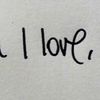 I love,